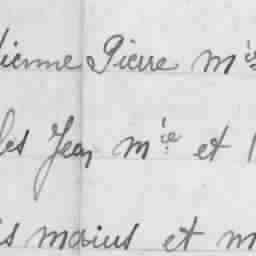 ienne Pierre mie
les Jean mie et
is moins et m